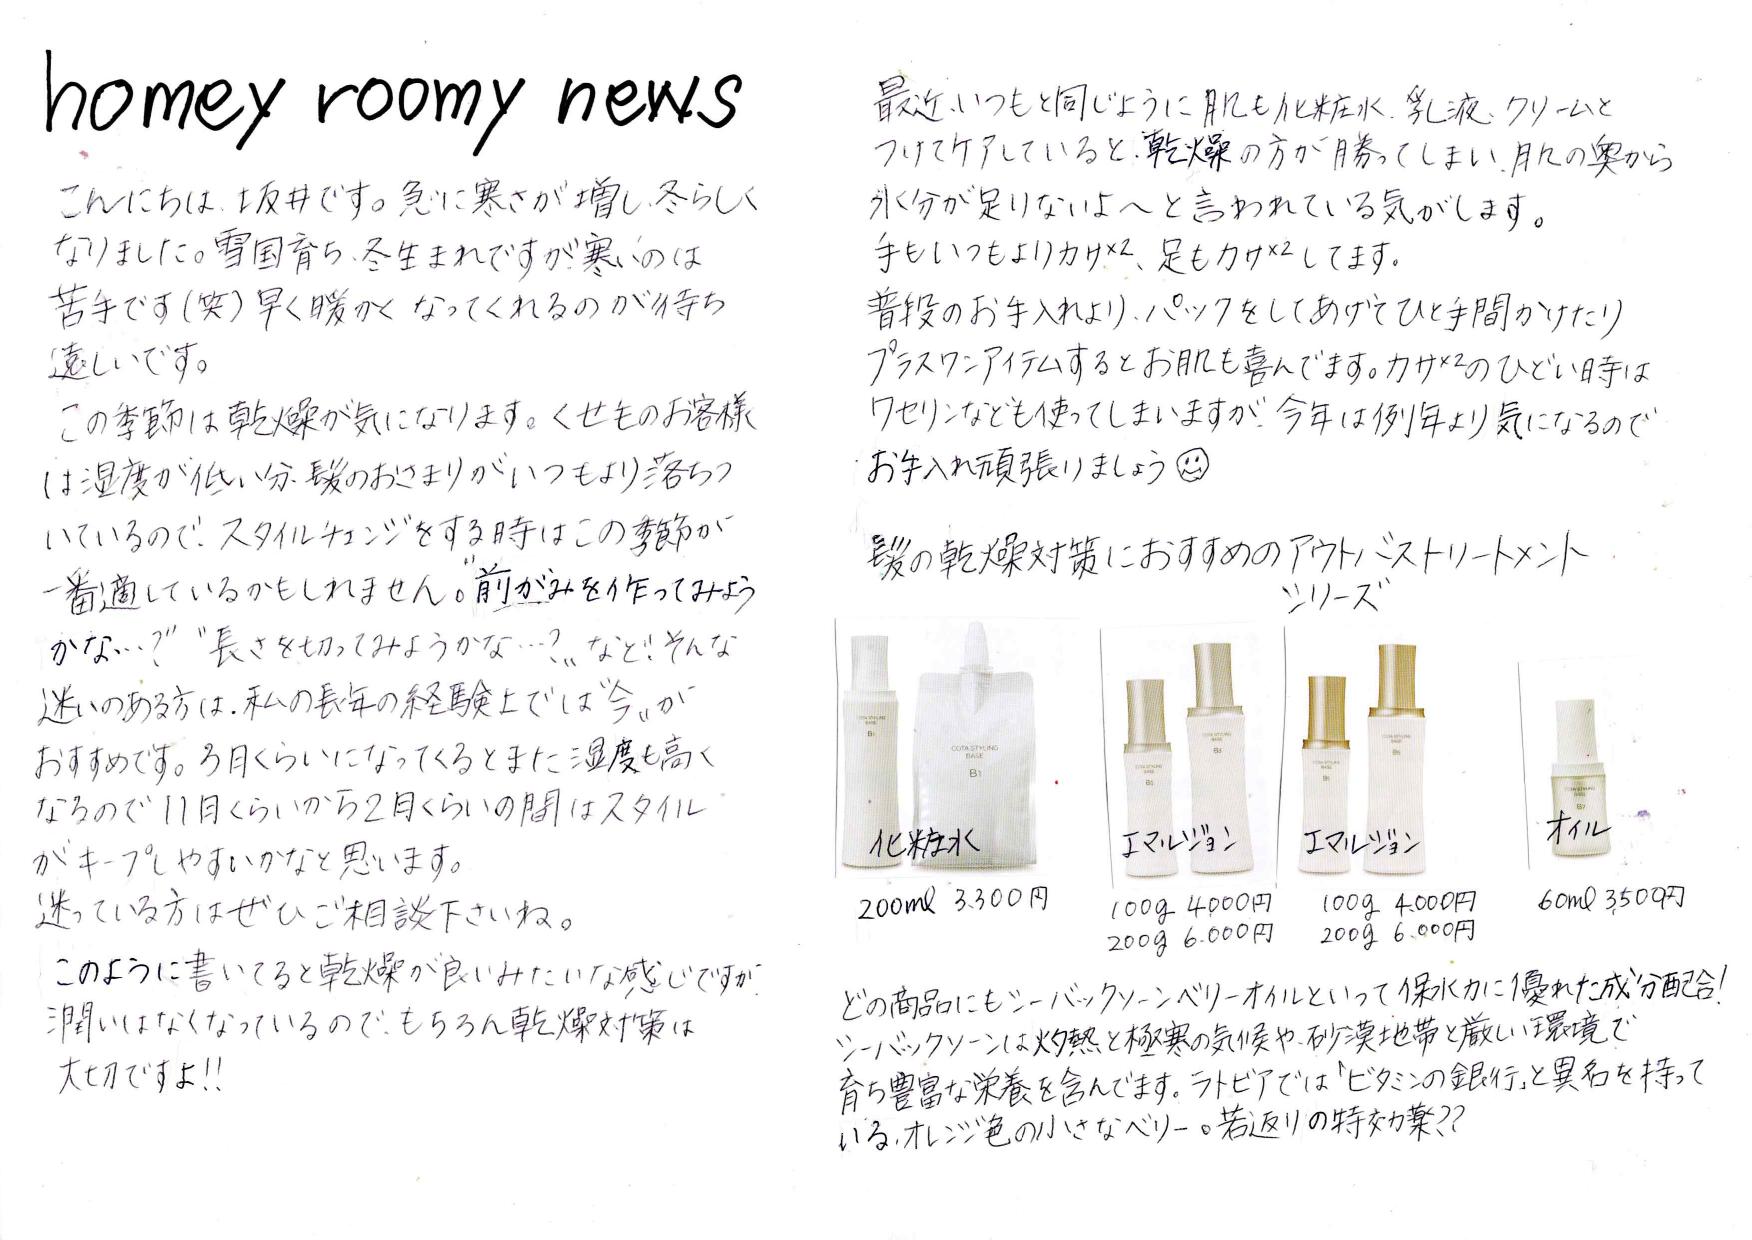 homey roomy news
こんにちは、坂井です。急に寒さが増し、冬らしく
なりました。雪国育ち、冬生まれですが寒いのは
苦手です(笑)早く暖かくなってくれるのが待ち
遠しいです。
この季節は乾燥が気になります。くせものお客様
は湿度が低い分、髪のおさまりがいつもより落ちつ
いているので、スタイルチェンジをする時はこの季節が
一番適しているかもしれません。"前がみを作ってみよう
かな…?" "長さを切ってみようかな…?"など!そんな
迷いのある方は、私の長年の経験上では"今"が
おすすめです。3月くらいになってくるとまた湿度も高く
なるので11月くらいから2月くらいの間はスタイル
がキープしやすいかなと思います。
迷っている方はぜひご相談下さいね。
このように書いてると乾燥が良いみたいな感じですが、
潤いはなくなっているので、もちろん乾燥対策は
大切ですよ!!
最近、いつもと同じように肌も化粧水、乳液、クリームと
つけてケアしていると、乾燥の方が勝ってしまい、肌の奥から
水分が足りないよ〜と言われている気がします。
手もいつもよりカサ×2、足もカサ×2してます。
普段のお手入れより、パックをしてあげてひと手間かけたり
プラスワンアイテムするとお肌も喜んでます。カサ×2のひどい時は
ワセリンなども使ってしまいますが、今年は例年より気になるので
お手入れ頑張りましょう☺
髪の乾燥対策におすすめのアウトバストリートメント
シリーズ
COTA STYLING
BASE
B1
COTA STYLING
BASE
B1
化粧水
200ml 3.300円
COTA STYLING
BASE
COTA STYLING
BASE
エマルジョン
100g 4.000円
200g 6.000円
COTA STYLING
BASE
COTA STYLING
BASE
エマルジョン
100g 4.000円
200g 6.000円
COTA STYLING
BASE
B7
オイル
60ml 3,500円
どの商品にもシーバックソーンベリーオイルといって保水力に優れた成分配合!
シーバックソーンは灼熱と極寒の気候や、砂漠地帯と厳しい環境で
育ち豊富な栄養を含んでます。ラトビアでは「ビタミンの銀行」と異名を持って
いる、オレンジ色の小さなベリー。若返りの特効薬??